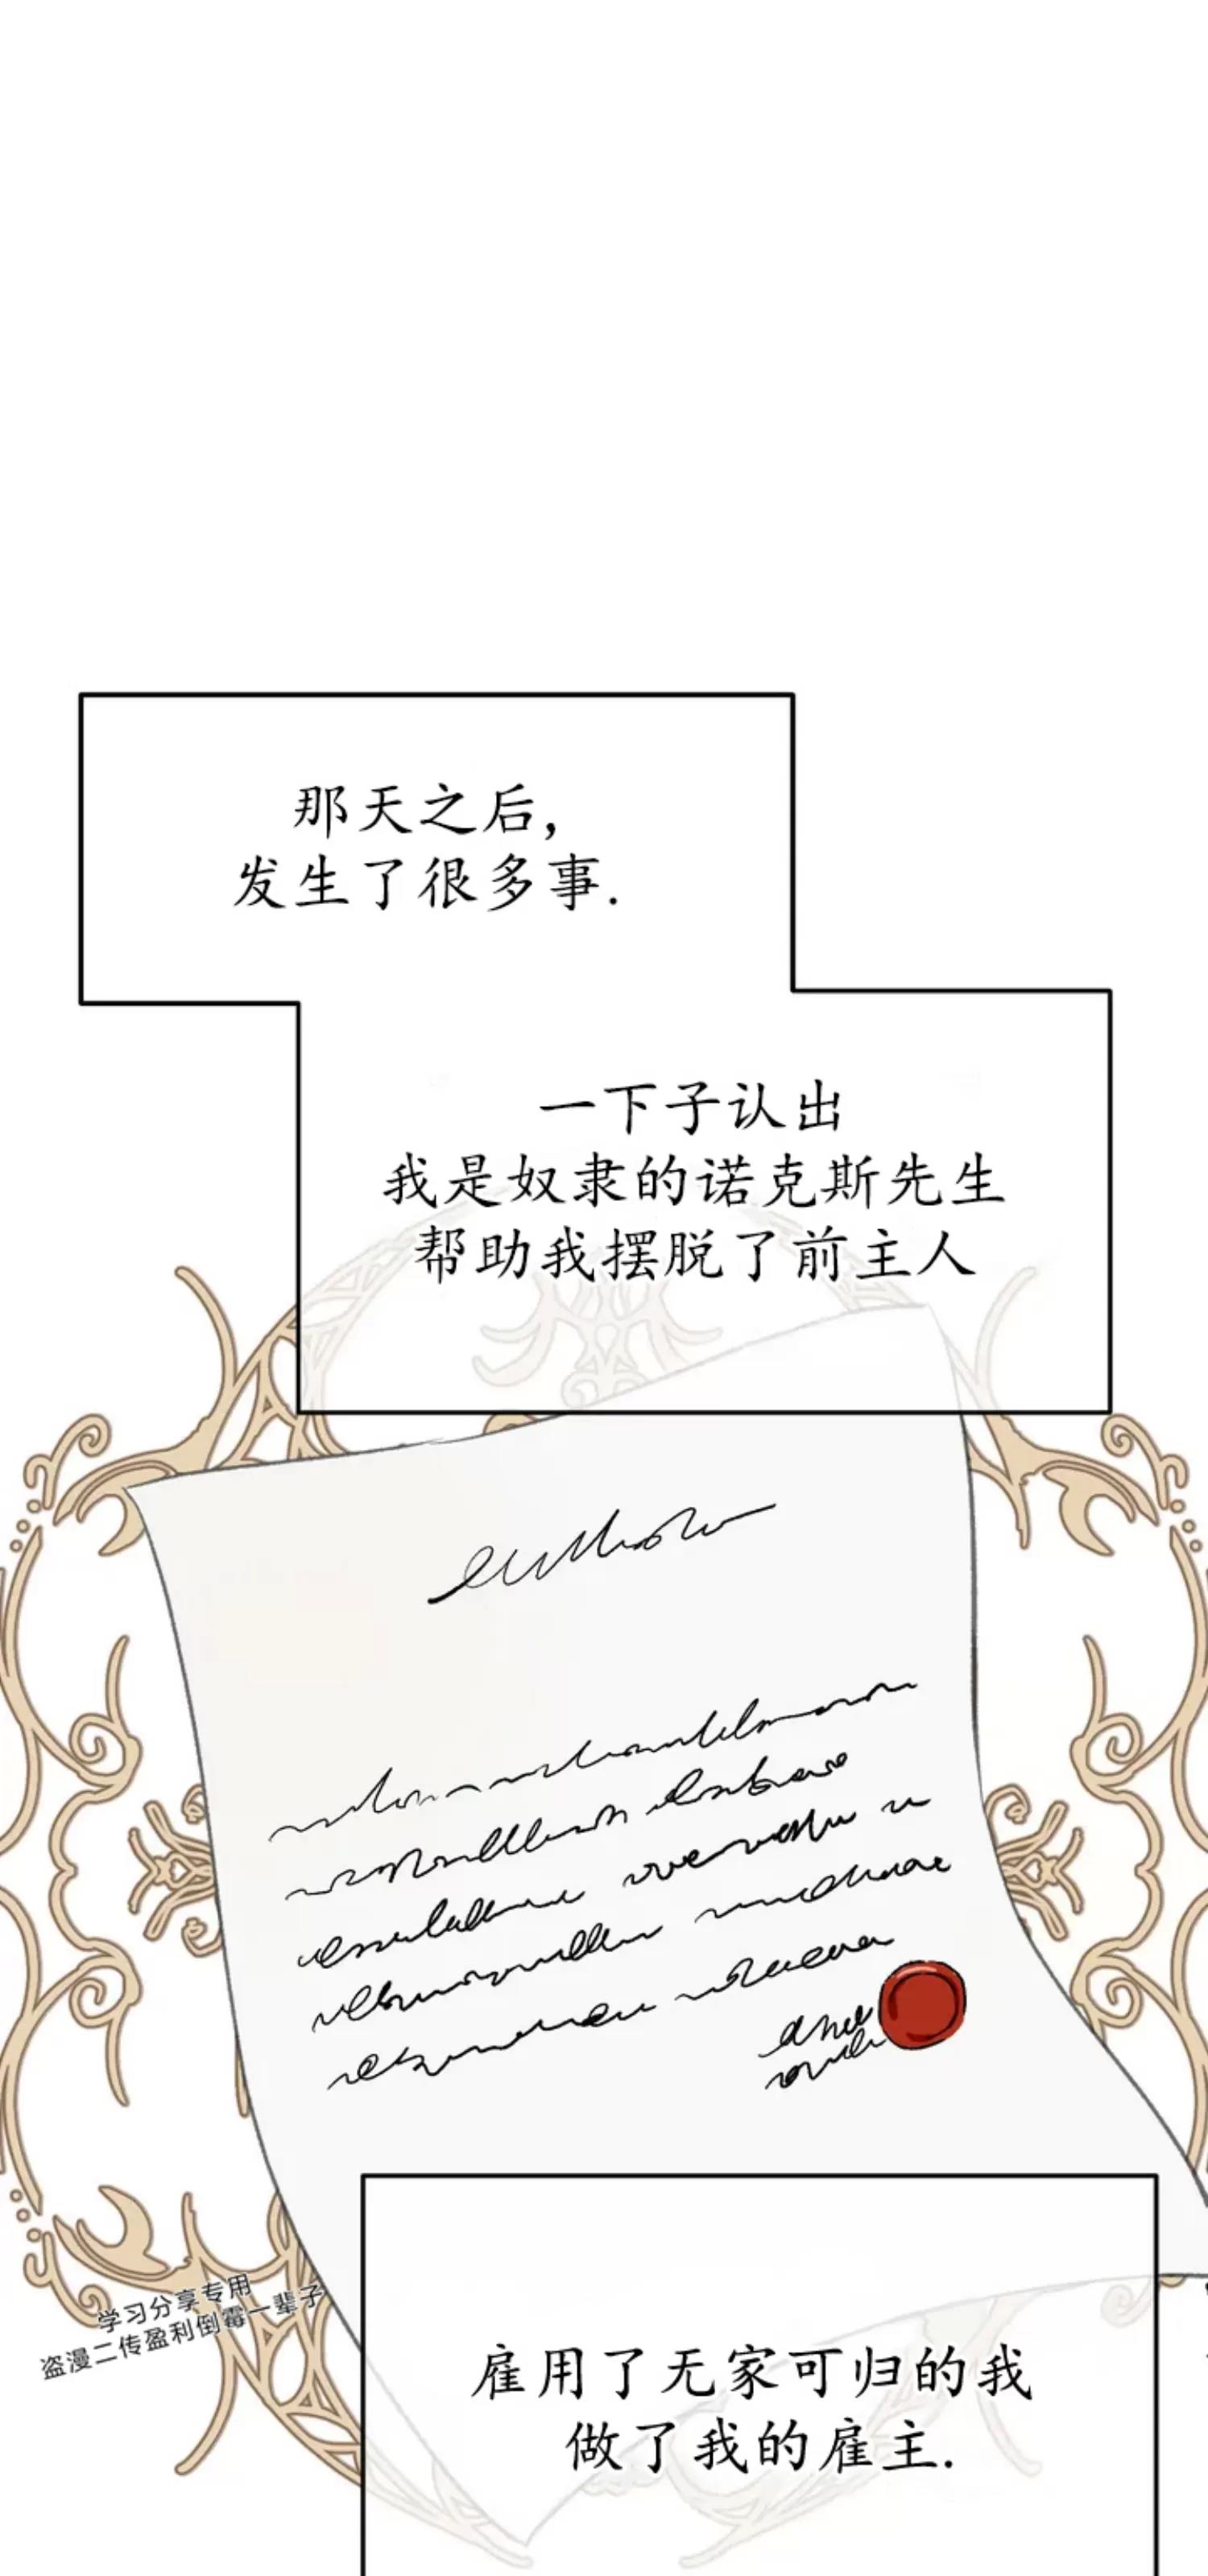 那天之后,
发生了很多事.
一下子认出
我是奴隶的诺克斯先生
帮助我摆脱了前主人
学习分享专用
盗漫二传盈利倒霉一辈子
雇用了无家可归的我
做了我的雇主.